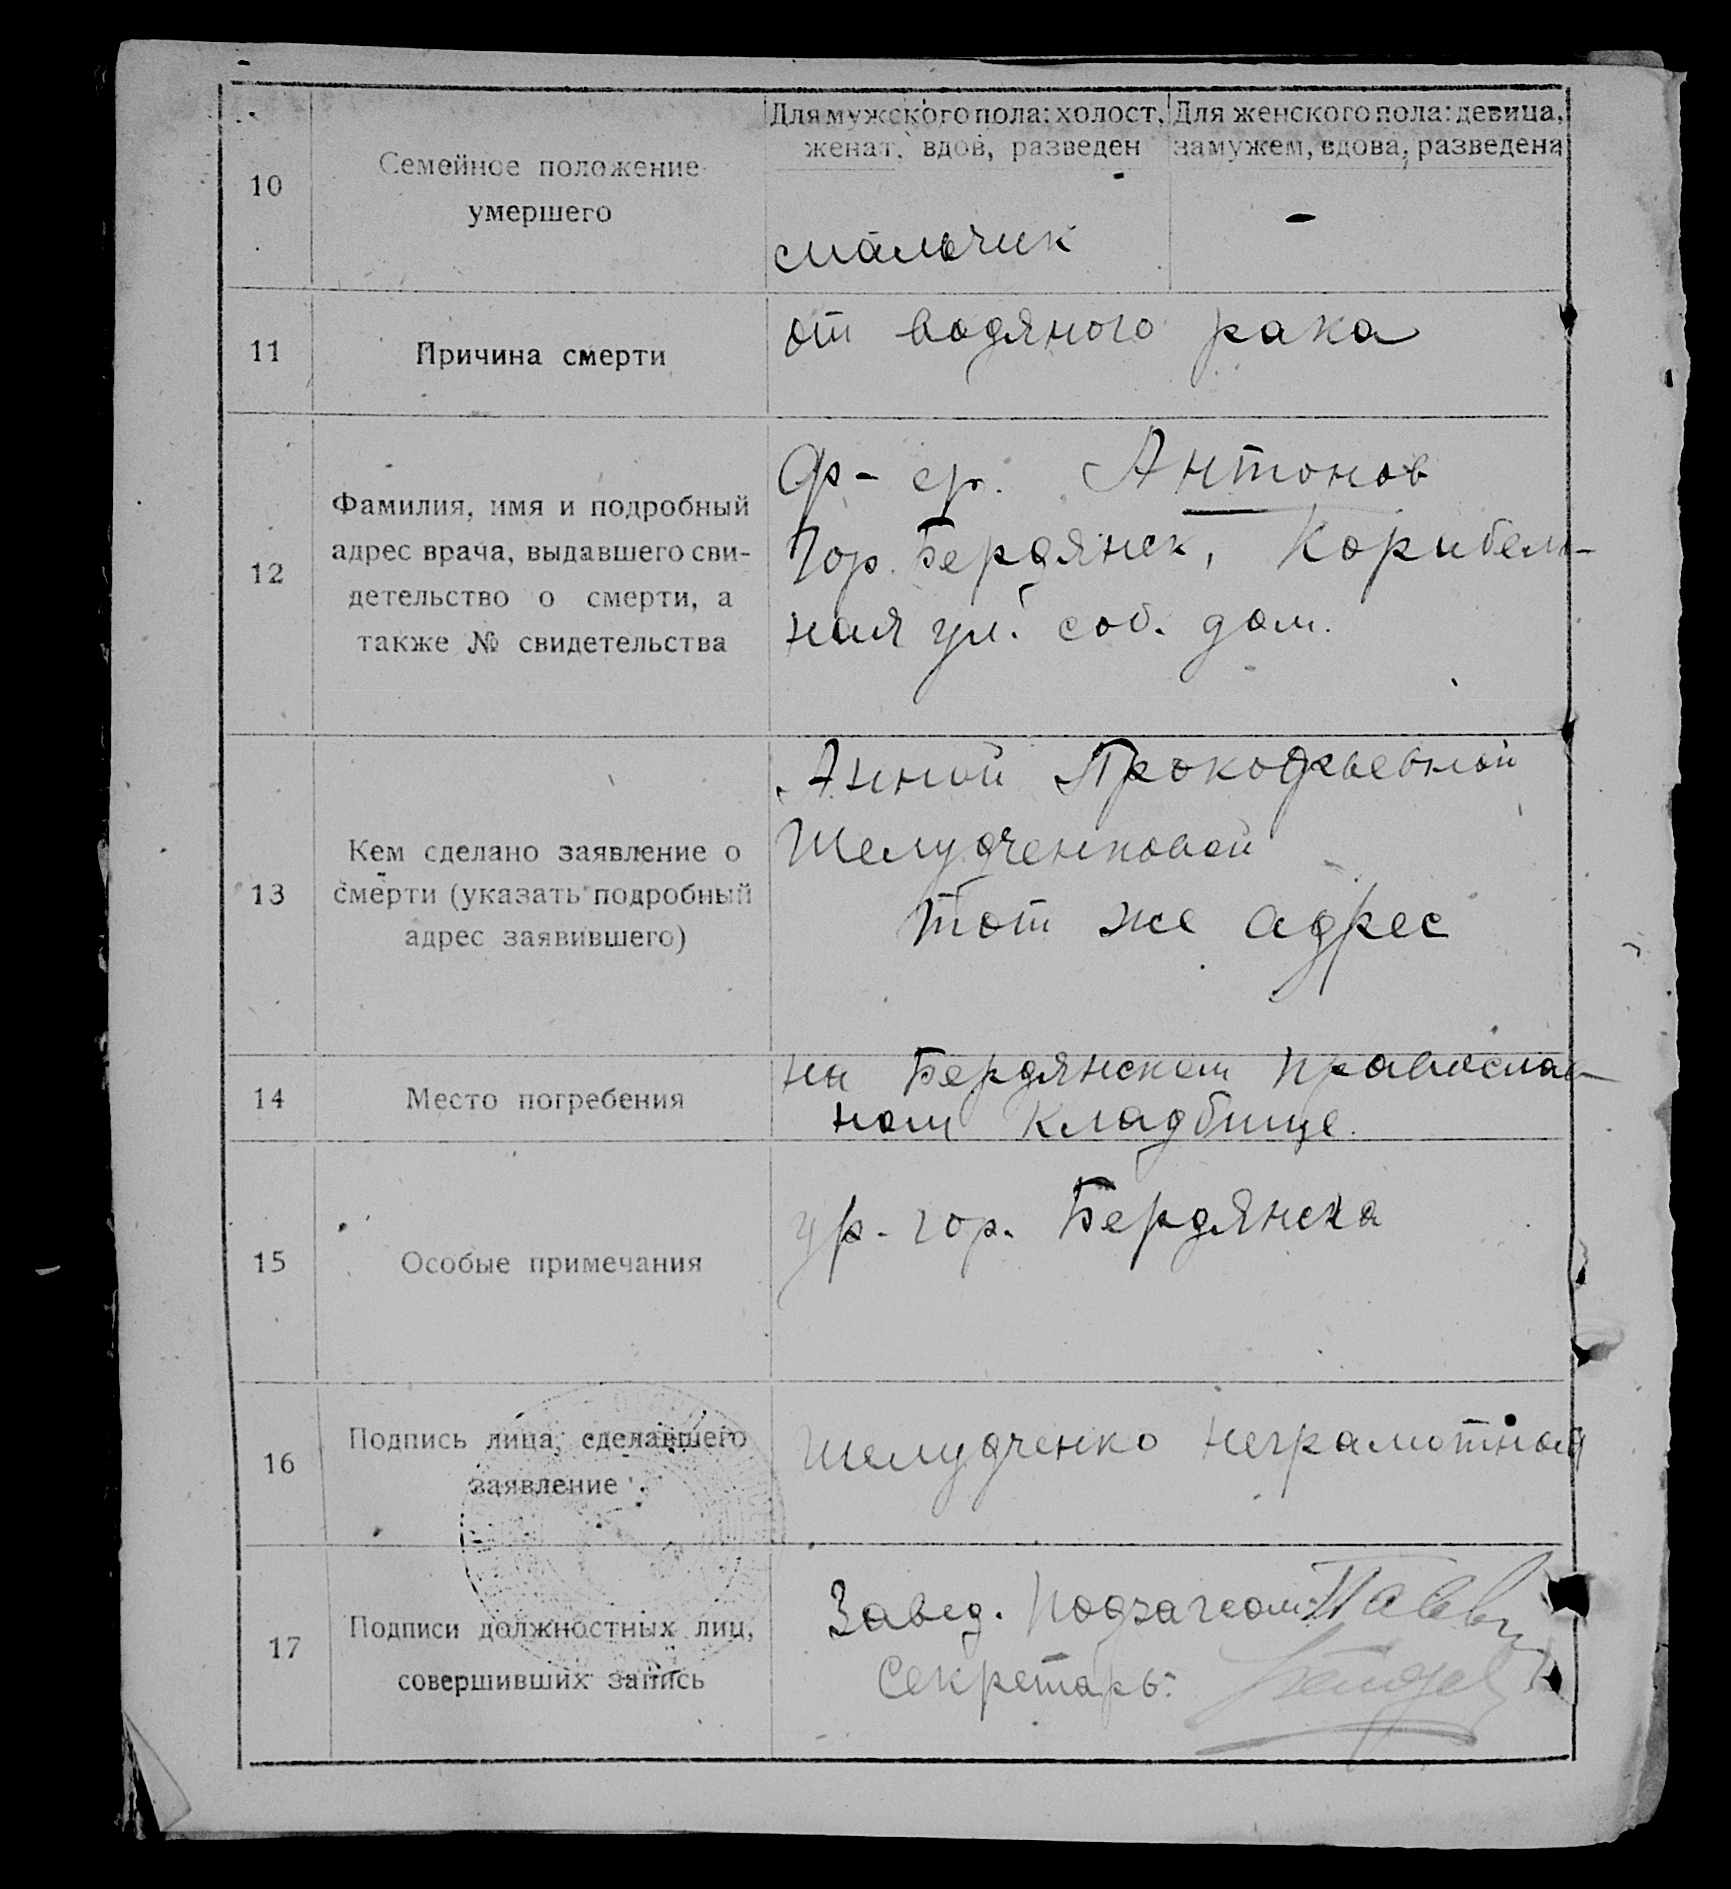 10
Семейное положение
умершего
Для мужского пола: холост,
женат, вдов, разведен
Для женского пола: девица,
замужем, вдова, разведена
мальчик
-
11
Причина смерти
от водяного рака
12
Фамилия, имя и подробный
адрес врача, выдавшего сви-
детельство о смерти, а
также № свидетельства
Ф-ер. Антонов
Гор. Бердянск, Корибель-
ная ул. соб. дом.
13
Кем сделано заявление о
смерти (указать подробный
адрес заявившего)
Анной Прокофьевной
Шелудченковой
тот же адрес
14
Место погребения
на Бердянском православ-
ном кладбище.
15
Особые примечания
ур. гор. Бердянска
16
Подпись лица, сделавшего
заявление
Шелудченко неграмотная
17
Подписи должностных лиц,
совершивших запись
Завед. Подзагсом:
Секретарь: